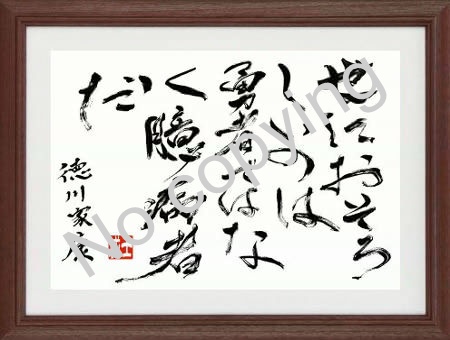 世におそろ
しいのは
勇者ではな
く臆病者
だ
徳川家康
No copying